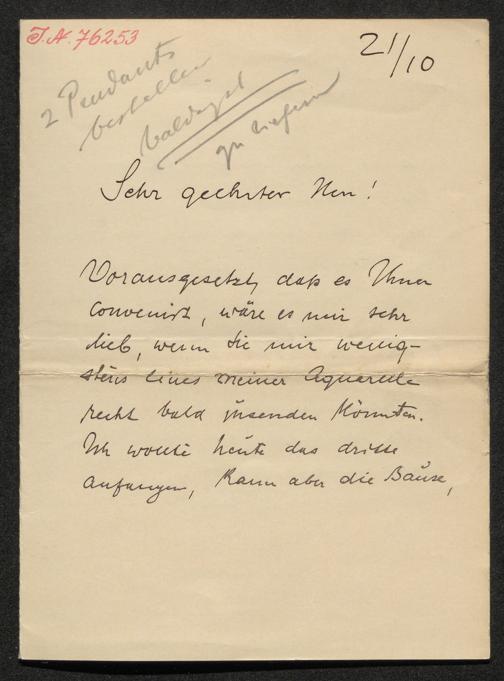 J.N. 76253
21/10
2 Pendants
bestellen
baldigst
zu liefern
Sehr geehrter Herr!
Vorausgesetzt, daß es Ihnen
convenirt, wäre es mir sehr
lieb, wenn Sie mir wenig-
stens eines meiner Aquarelle
recht bald zusenden könnten.
Ich wollte heute das dritte
anfangen, kann aber die Bause,